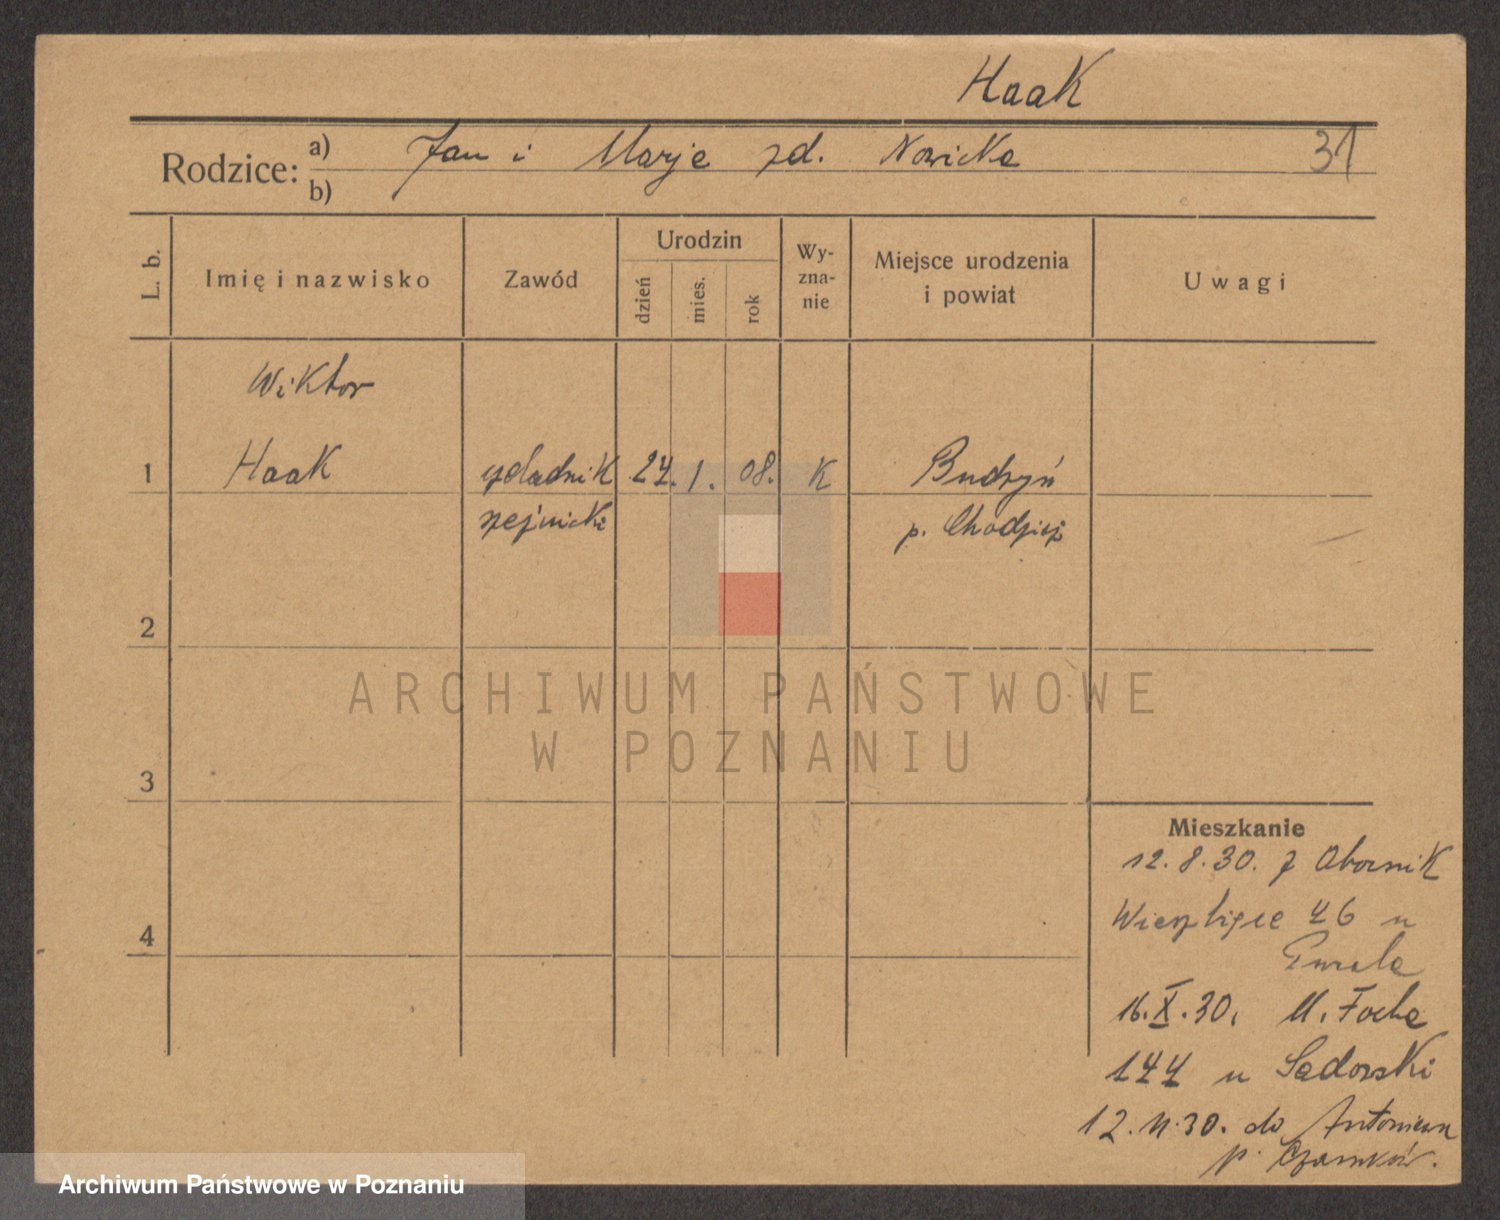 Haak
Rodzice: a) Jan i Marja zd. Nowicka 31
b)
L. b. Imię i nazwisko Zawód Urodzin dzień mies. rok Wy-zna-nie Miejsce urodzenia i powiat Uwagi
Wiktor
1 Haak czeladnik 24. 1. 08. K Budzyń
rzeźnicki p. Chodzież
2
ARCHIWUM PAŃSTWOWE
W POZNANIU
3
Mieszkanie
12.8.30. z Obornik
Wierzbięce 46 u
16.X.30. M. Focha
144 u Sadowski
4
12.11.30. do Antoniewa
p. Czarnków.
Archiwum Państwowe w Poznaniu